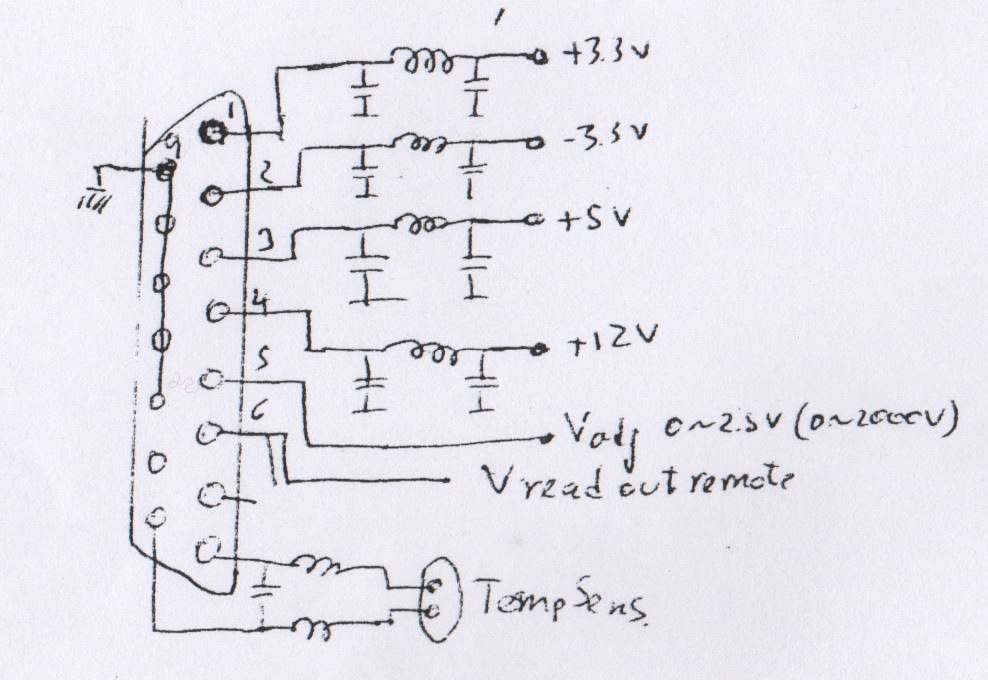 +3.3V
1
9
-3.3V
2
+5V
3
4
+12V
5
6
Vadj 0~2.5V (0~2000V)
Vread out remote
Temp Sens.